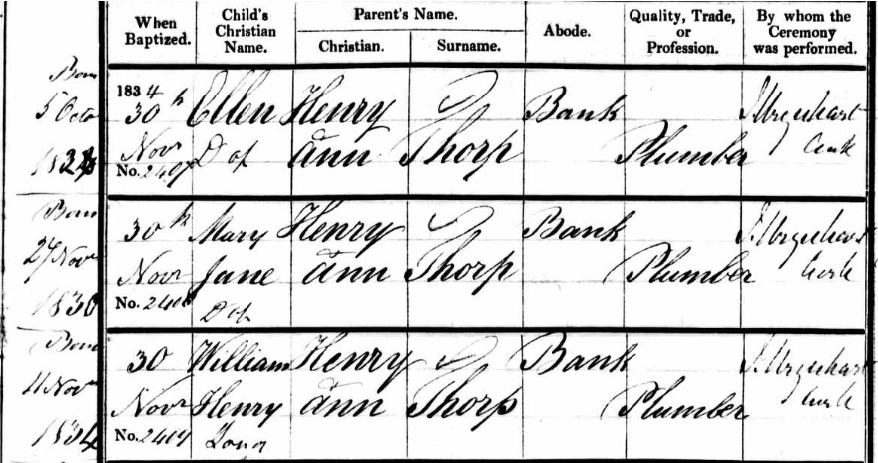 When Baptized. Child's Christian Name. Parent's Name. Christian. Surname. Abode. Quality, Trade, or Profession. By whom the Ceremony was performed.
Born 1834
5 Octo 30th Ellen Henry Bank J Urquhart
Nov D of Ann Thorp Plumber Curate
No. 2407
Born 30th Mary Henry Bank J. Urquhart
27 Nov Nov Jane Ann Thorp Plumber
1830 No. 2408 D of
Born 30 William Henry Bank J. Urquhart
11 Nov Nov Henry Ann Thorp Plumber
1834 No. 2409 Son of